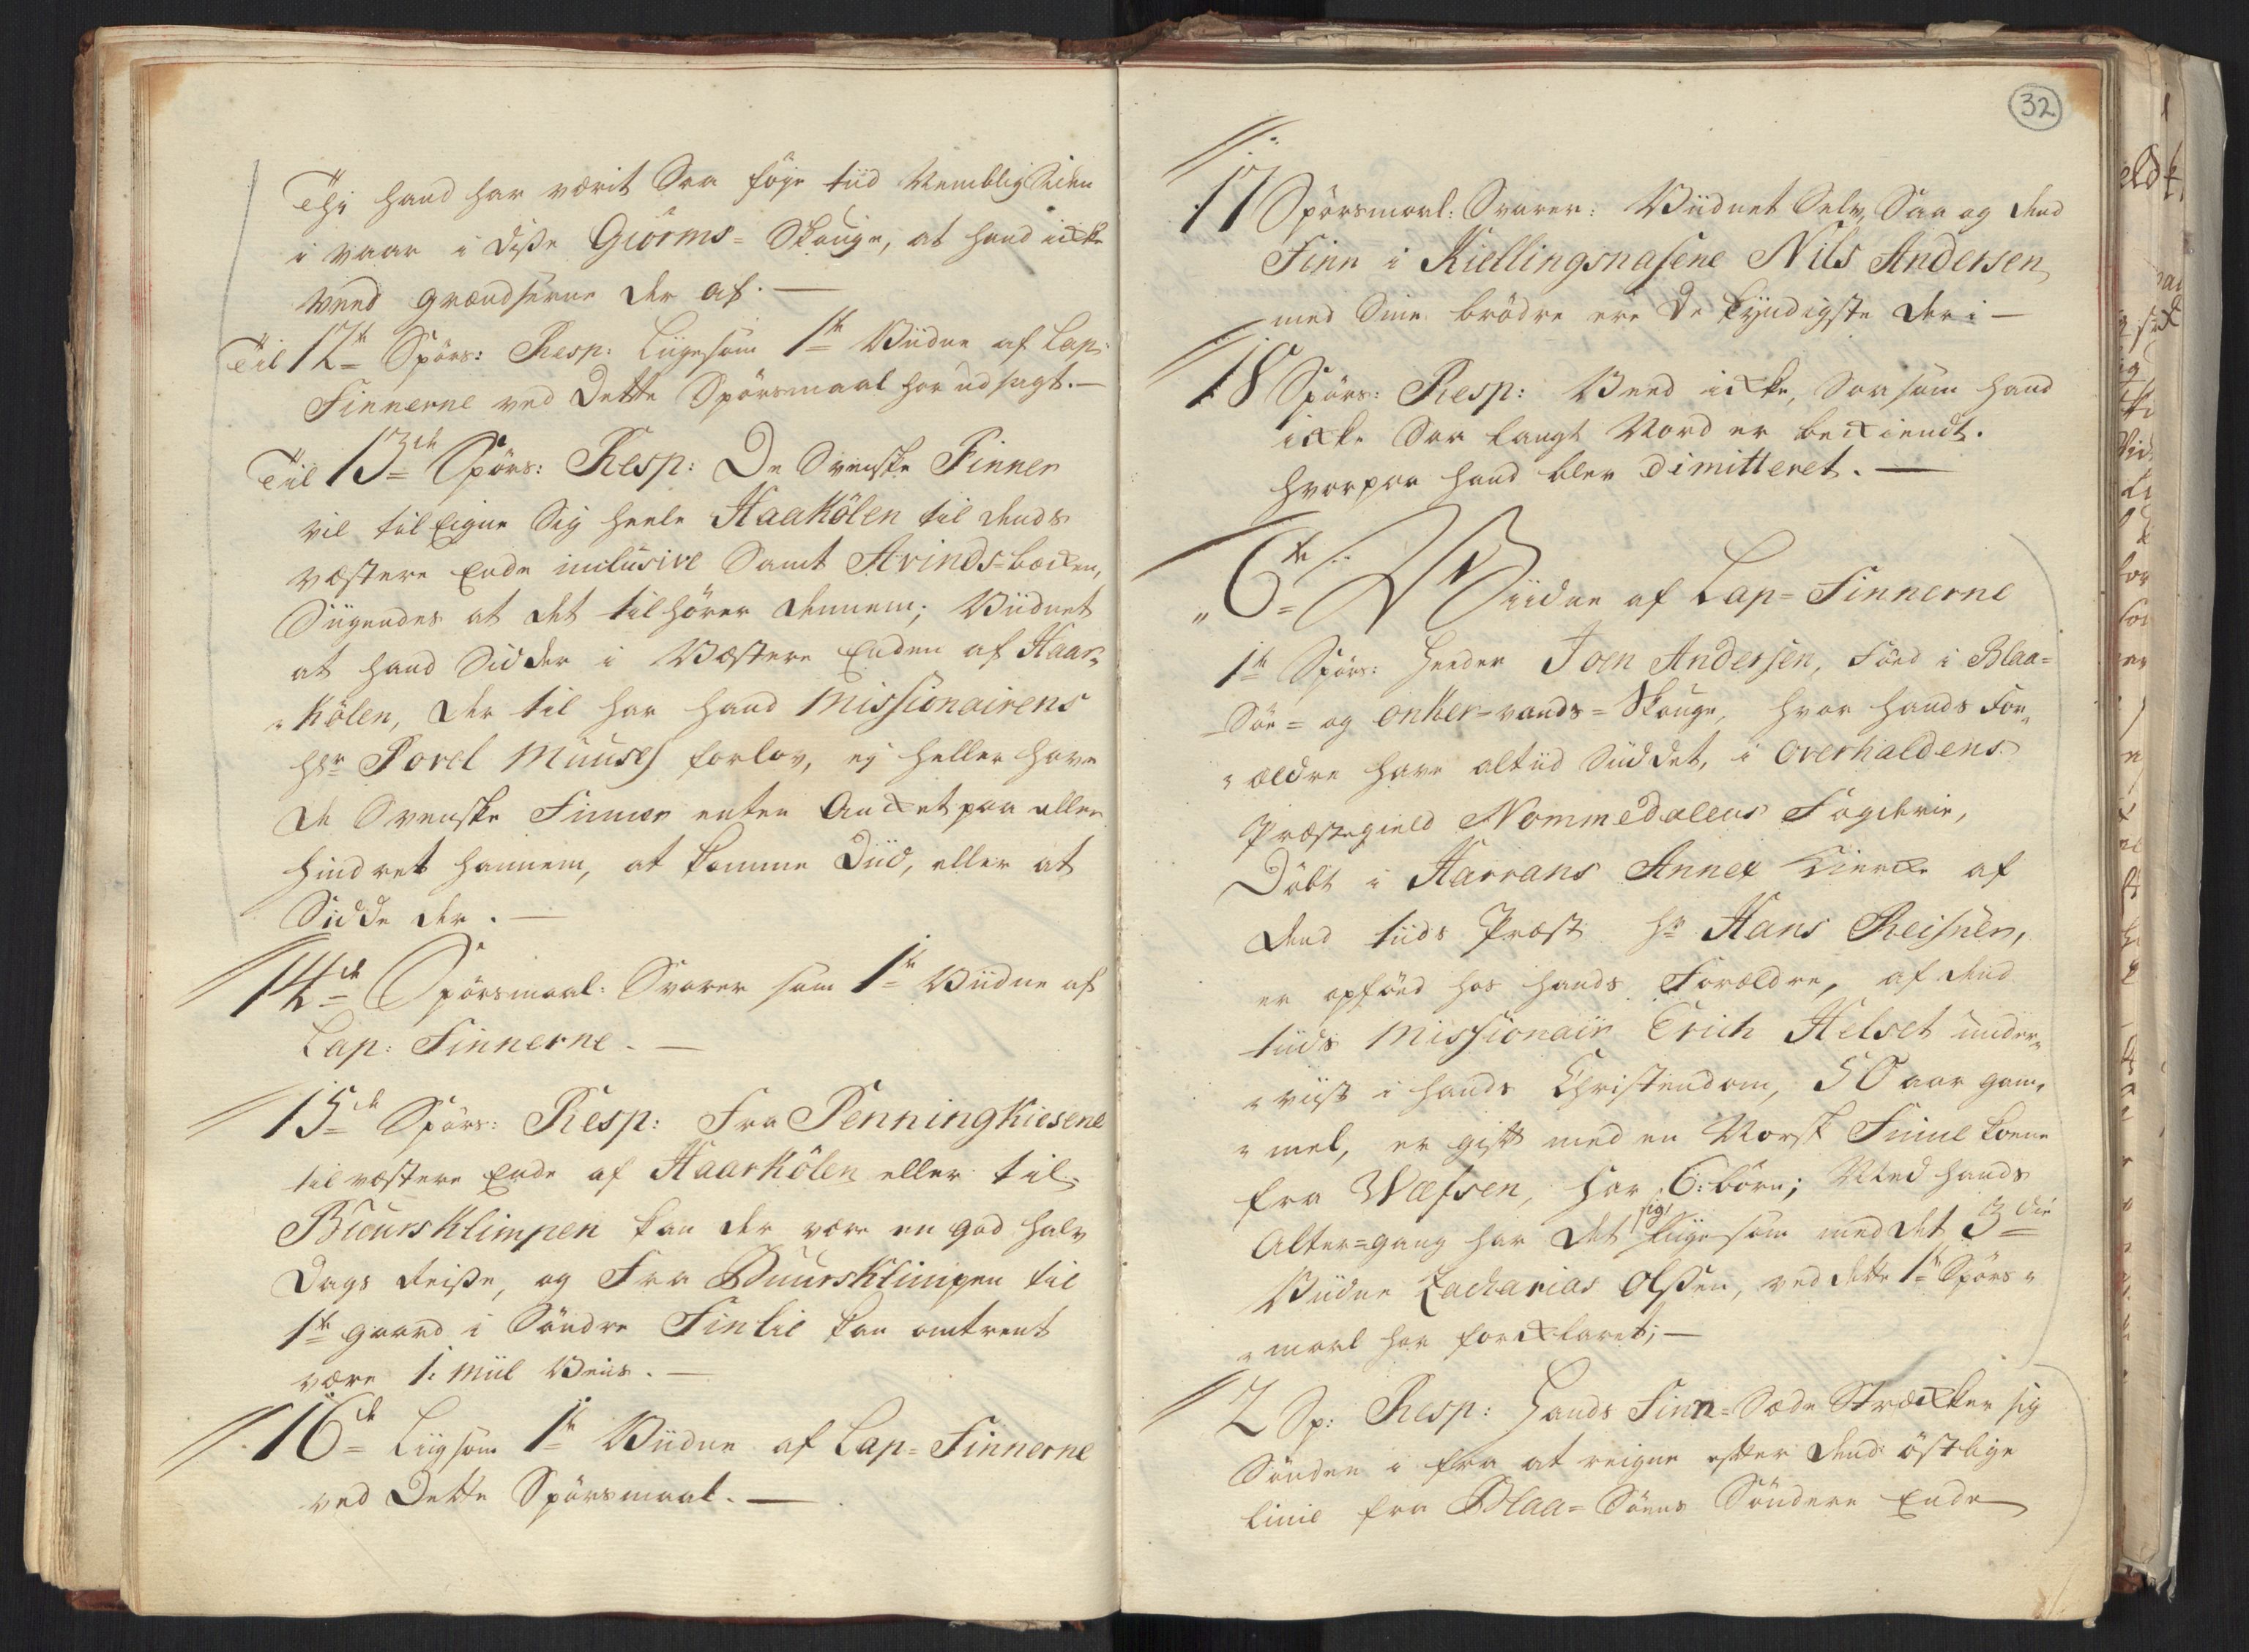 Thj hand har værit Saa föye tiid Nemblig Siden
i vaar i disse Giörms- Skouge, at hand icke
veed grændserne der af. —
Til 12te Spörs: Resp: Liigesom 1te Viidne af Lap-
Finnerne ved Dette Spörsmaal har udsagt. —
Til 13de Spörs: Resp: De Svenske Finner
vil tilEigne Sig heele Haakölen til dends
væstere Ende inclusive Samt Arinds-backen,
Siigendes at det tilhörer dennem; Viidnet
at hand Sidder i Væstere Enden af Haar-
kölen, der til har hand Missionairens
Hr Povel Muuses forlov, ej heller have
de Svenske Finner enten Ancket paa eller
hindret hannem, at komme Diid, eller at
Sidde der. —
14de Spörsmaal: Svarer som 1te Viidne af
Lap: Finnerne. —
15de Spörs: Resp: Fra Penningkiesene
til væstere Ende af Haarkölen eller til
Buursklimpen kan der være en god halv
Dags Reise, og Fra Buursklimpen til
1te gaard i Söndre Finlie kan omtrent
være 1: Miil Veis. —
16de Liigsom 1te Viidne af Lap-Finnerne
ved Dette Spörsmaal. —
32
17 Spörsmaal: Svarer: Viidnet Selv, Saa og dend
Finn i Kiellingsnasene Nils Andersen
med Sine brödre ere de kyndigste der i —
18 Spörs: Resp: Veed icke, Saasom hand
icke Saa langt Nord er beckiendt.
hvorpaa hand blev dimitteret. —
6te Viidne af Lap-Finnerne
1te Spörs: Heeder Joen Andersen, Föed i Blaa-
Söe- og onker-vands-Skouge, hvor hands For-
ældre have altiid Siddet, i Overhaldens
Præstegield Nommedalens Fogderie,
Döbt i Harrans Annex Kiercke af
dend tiids Præst Hr Hans Reisner,
er opföed hos hands Forældre, af dend
tiids Missionair Erich Helset under-
viist i hands Christendom, 50 aar gam-
mel, er gift med en Norsk Finne kone
fra Wefsen, har 6: börn; Med hands
Alter-gang har det sig Liigesom med det 3die
Viidne Zacharias Olssen, ved dette 1te Spörs-
maal har forcklaret; —
2 Sp: Resp: Hands Finn-Sæde Strækker sig
Sönden i fra at reigne efter dend östlige
Linie fra Blaa-Söens Söndere Ende